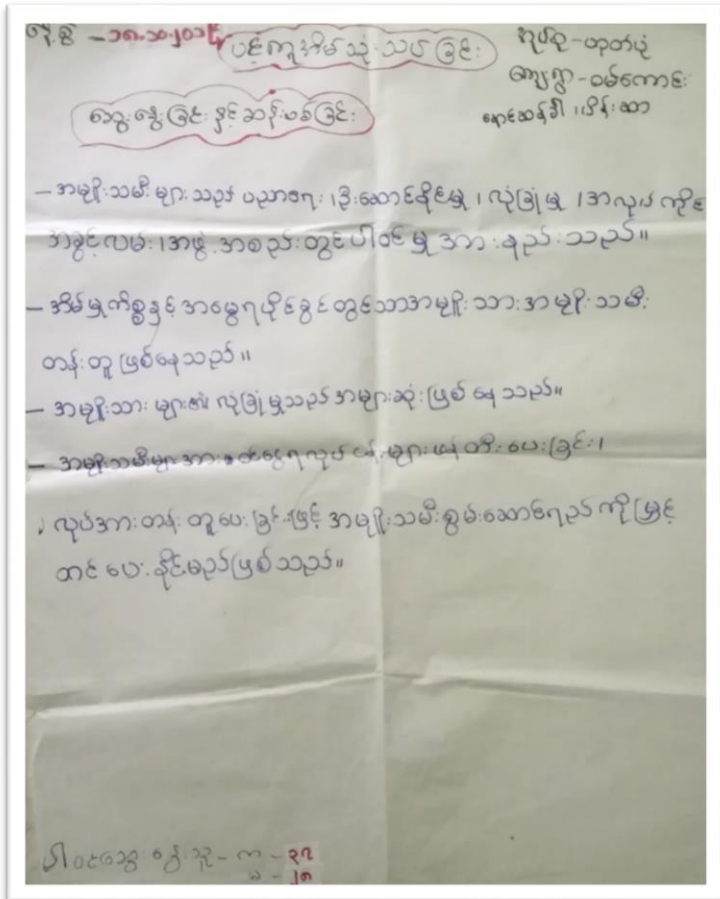 နေ့စွဲ - ၁၈.၁၁.၂၀၁၄
ပင့်ကူအိမ်သုံးသပ်ခြင်း
အုပ်စု - ထုတ်ပုံ
ကျေးရွာ - ဝမ်ကောင်း
ဆွေးနွေးခြင်းနှင့်ဆန်းစစ်ခြင်း
နောင်ဆန်ခါ ၊
- အမျိုးသမီးများသည် ပညာရေး ၊ ဦးဆောင်နိုင်မှု ၊ လုံခြုံမှု ၊ အလုပ်ကိုင်
အခွင့်လမ်း ၊ အဖွဲ့အစည်းတွင်ပါဝင်မှု အားနည်းသည်။
- အိမ်မှုကိစ္စနှင့် အမွေရပိုင်ခွင့်တွင်သာ အမျိုးသား အမျိုးသမီး
တန်းတူဖြစ်နေသည်။
- အမျိုးသားများ၏ လုံခြုံမှုသည် အများဆုံးဖြစ်နေသည်။
- အမျိုးသမီးများအား ဝင်ငွေရလုပ်ငန်းများဖန်တီးပေးခြင်း ၊
၂ လုပ်အားတန်းတူပေးခြင်းဖြင့် အမျိုးသမီးစွမ်းဆောင်ရည်ကိုမြှင့်
တင်ပေးနိုင်မည်ဖြစ်သည်။
ပါဝင်ဆွေးနွေးသူ - ကျ - ၃၇
မ - ၂၈